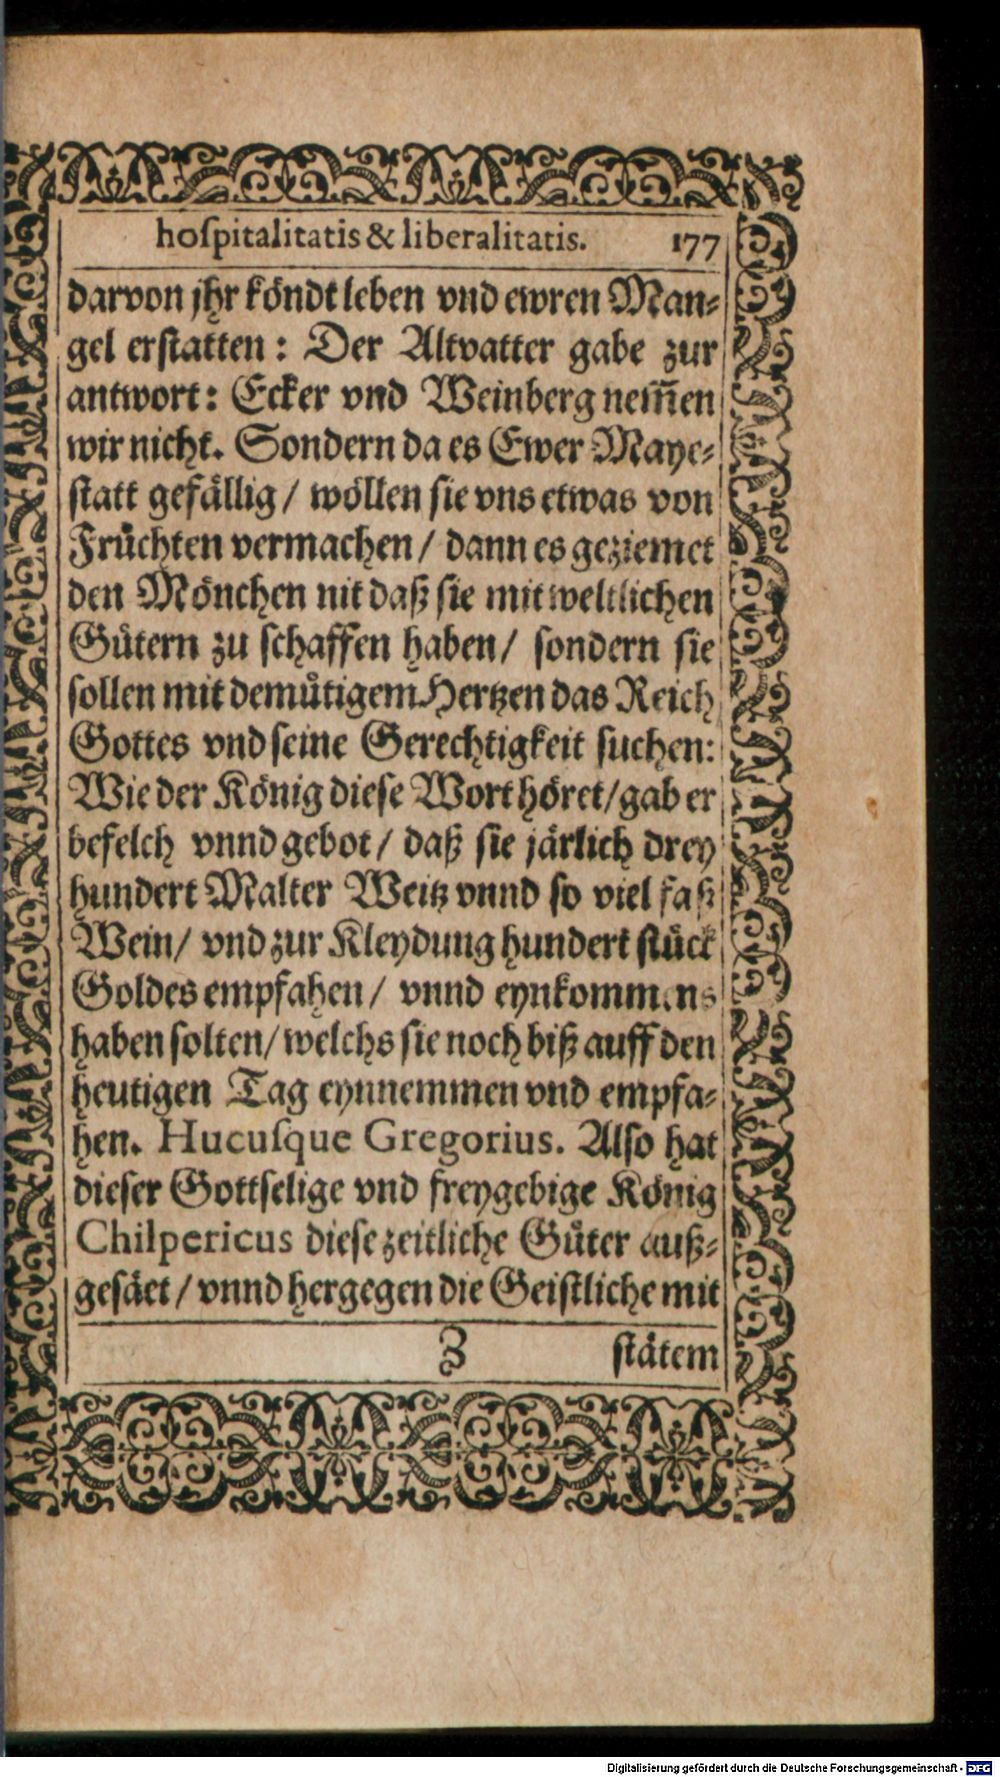 hoſpitalitatis & liberalitatis. 177
darvon jhr koͤndt leben vnd ewren Man⸗
gel erſtatten: Der Altvatter gabe zur
antwort: Ecker vnd Weinberg nem̃en
wir nicht. Sondern da es Ewer Maye⸗
ſtatt gefaͤllig / woͤllen ſie vns etwas von
Fruͤchten vermachen / dann es geziemet
den Moͤnchen nit daß ſie mit weltlichen
Guͤtern zu ſchaffen haben / ſondern ſie
ſollen mit demuͤtigem Hertzen das Reich
Gottes vnd ſeine Gerechtigkeit ſuchen:
Wie der Koͤnig dieſe Wort hoͤret / gab er
befelch vnnd gebot / daß ſie jaͤrlich drey
hundert Malter Weitz vnnd ſo viel faß
Wein / vnd zur Kleydung hundert ſtuͤck
Goldes empfahen / vnnd eynkommens
haben ſolten / welchs ſie noch biß auff den
heutigen Tag eynnemmen vnd empfa⸗
hen. Hucuſque Gregorius. Alſo hat
dieſer Gottſelige vnd freygebige Koͤnig
Chilpericus dieſe zeitliche Guͤter auß⸗
geſaͤet / vnnd hergegen die Geiſtliche mit
Z ſtaͤtem
Digitalisierung gefördert durch die Deutsche Forschungsgemeinschaft - DFG